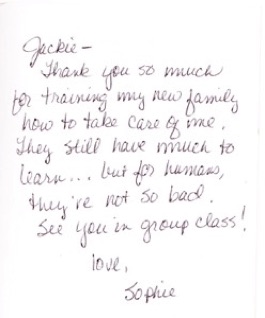 Jackie –
Thank you so much
for training my new family
how to take care of me.
They still have much to
learn... but for humans,
they're not so bad.
See you in group class!
love,
Sophie